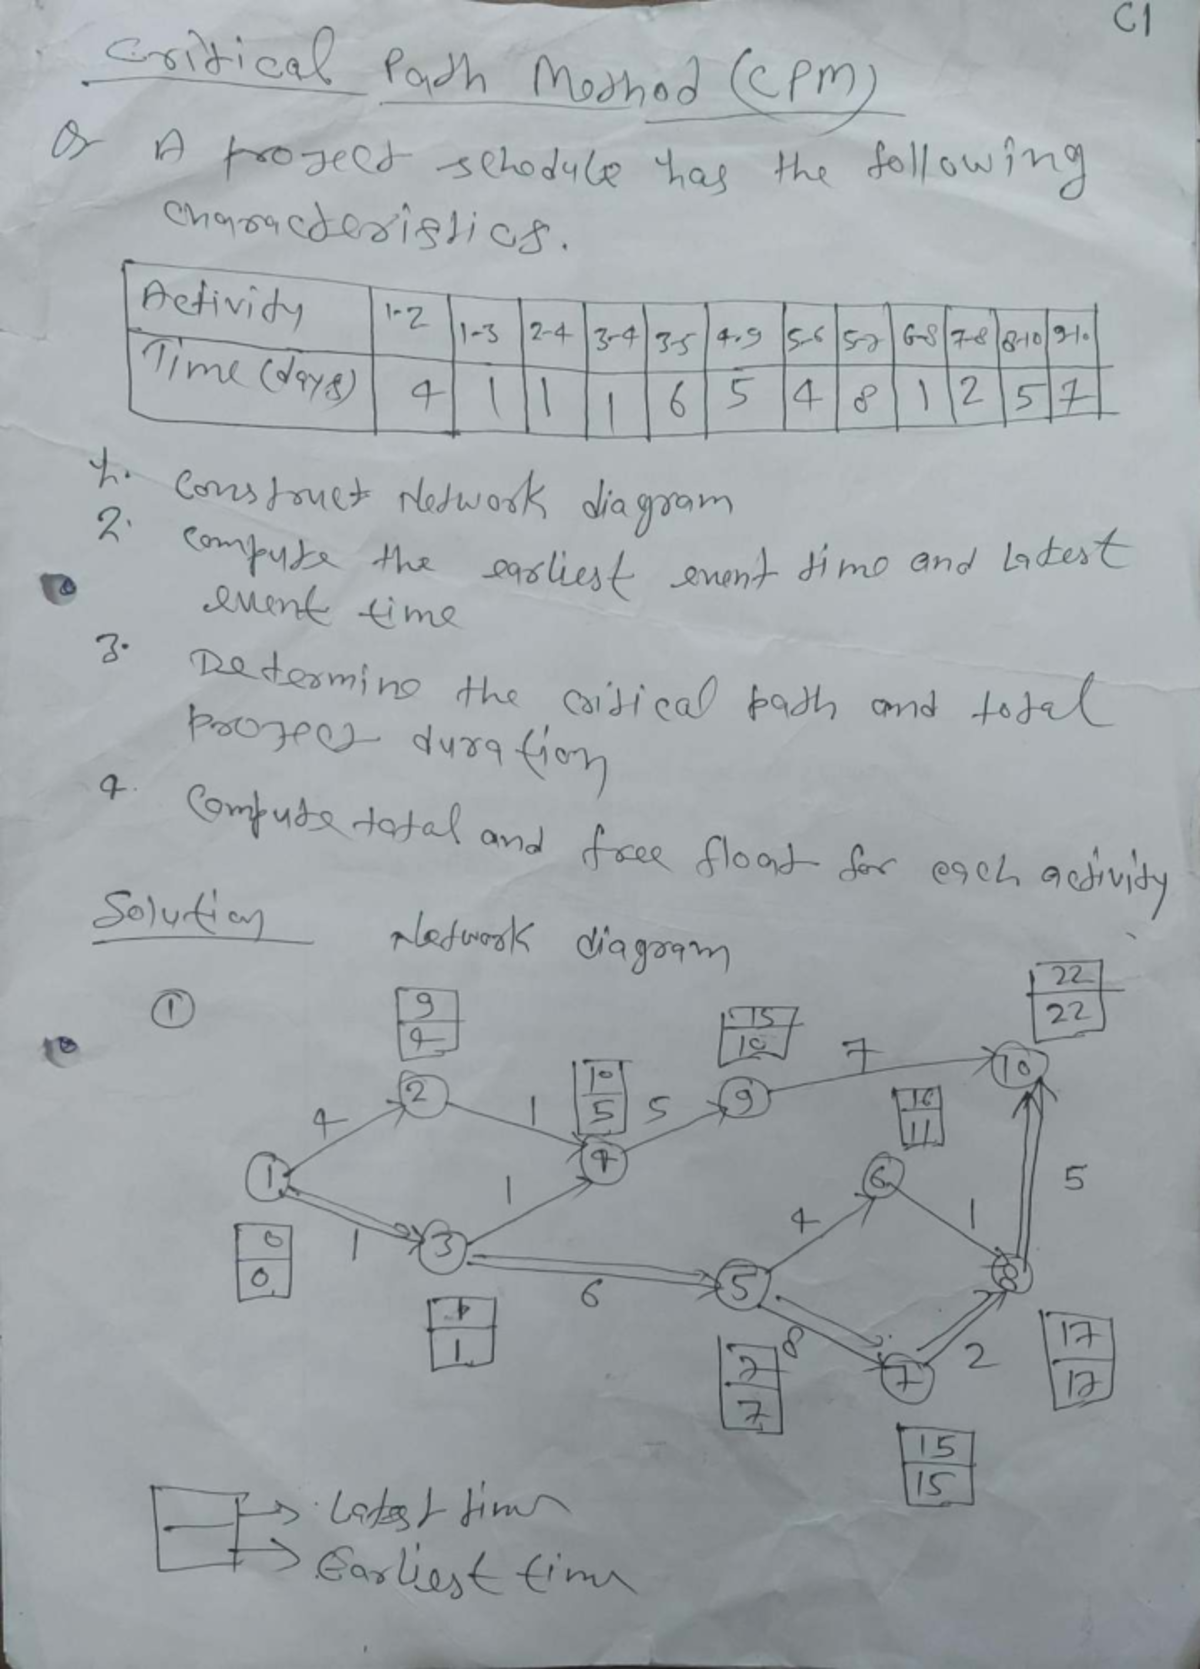 C1
Critical Path Method (CPM)
Q A project schedule has the following
characteristics.
Activity 1-2 1-3 2-4 3-4 3-5 4-9 5-6 5-7 6-8 7-8 8-10 9-10
Time (days) 4 1 1 1 6 5 4 8 1 2 5 7
1. Construct Network diagram
2. Compute the earliest event time and Latest
event time
3. Determine the critical path and total
project duration
4. Compute total and free float for each activity
Solution Network diagram
①
22
22
9
4
15
10
7
10
10
5
16
11
2
1
5
9
4
4
6
5
1
1
1
4
1
3
8
0
0
1
6
5
1
1
8
7
2
17
17
7
7
15
15
Latest time
Earliest time